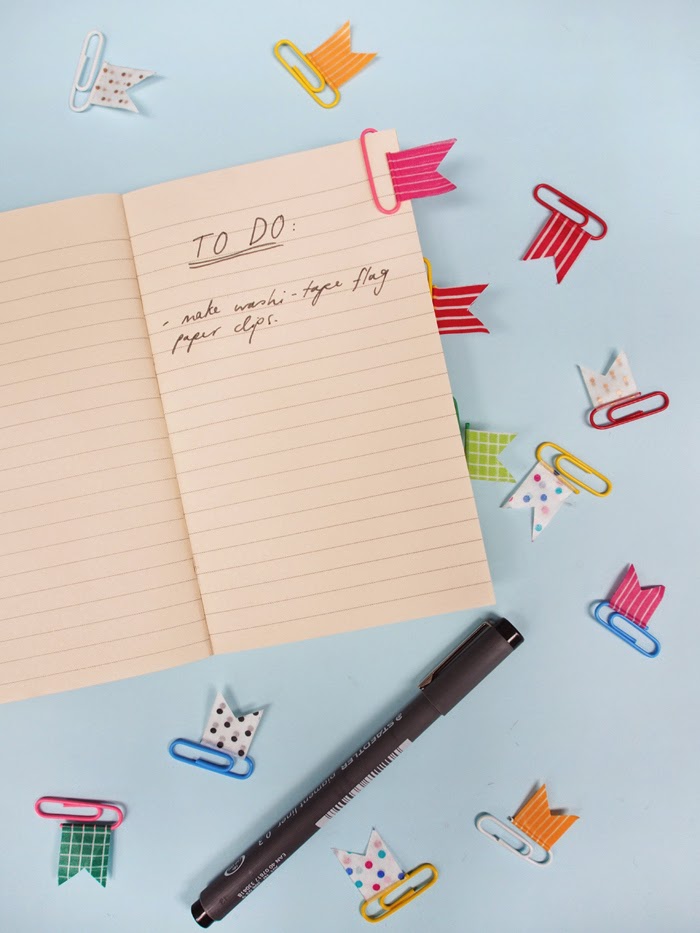 TO DO:
- make washi-tape flag
paper clips.
STAEDTLER pigment liner 0.3